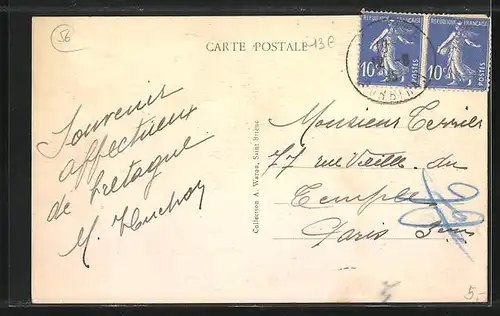 56
CARTE POSTALE
13 €
REPUBLIQUE FRANÇAISE
REPUBLIQUE FRANÇAISE
10c
POSTES
10c
POSTES
MORBIHAN
Souvenir
affectueux
de Bretagne
M.
Collection A. Waron, Saint Brieuc
Monsieur Terrier
77 rue Vieille du
Temple
Paris
5.-